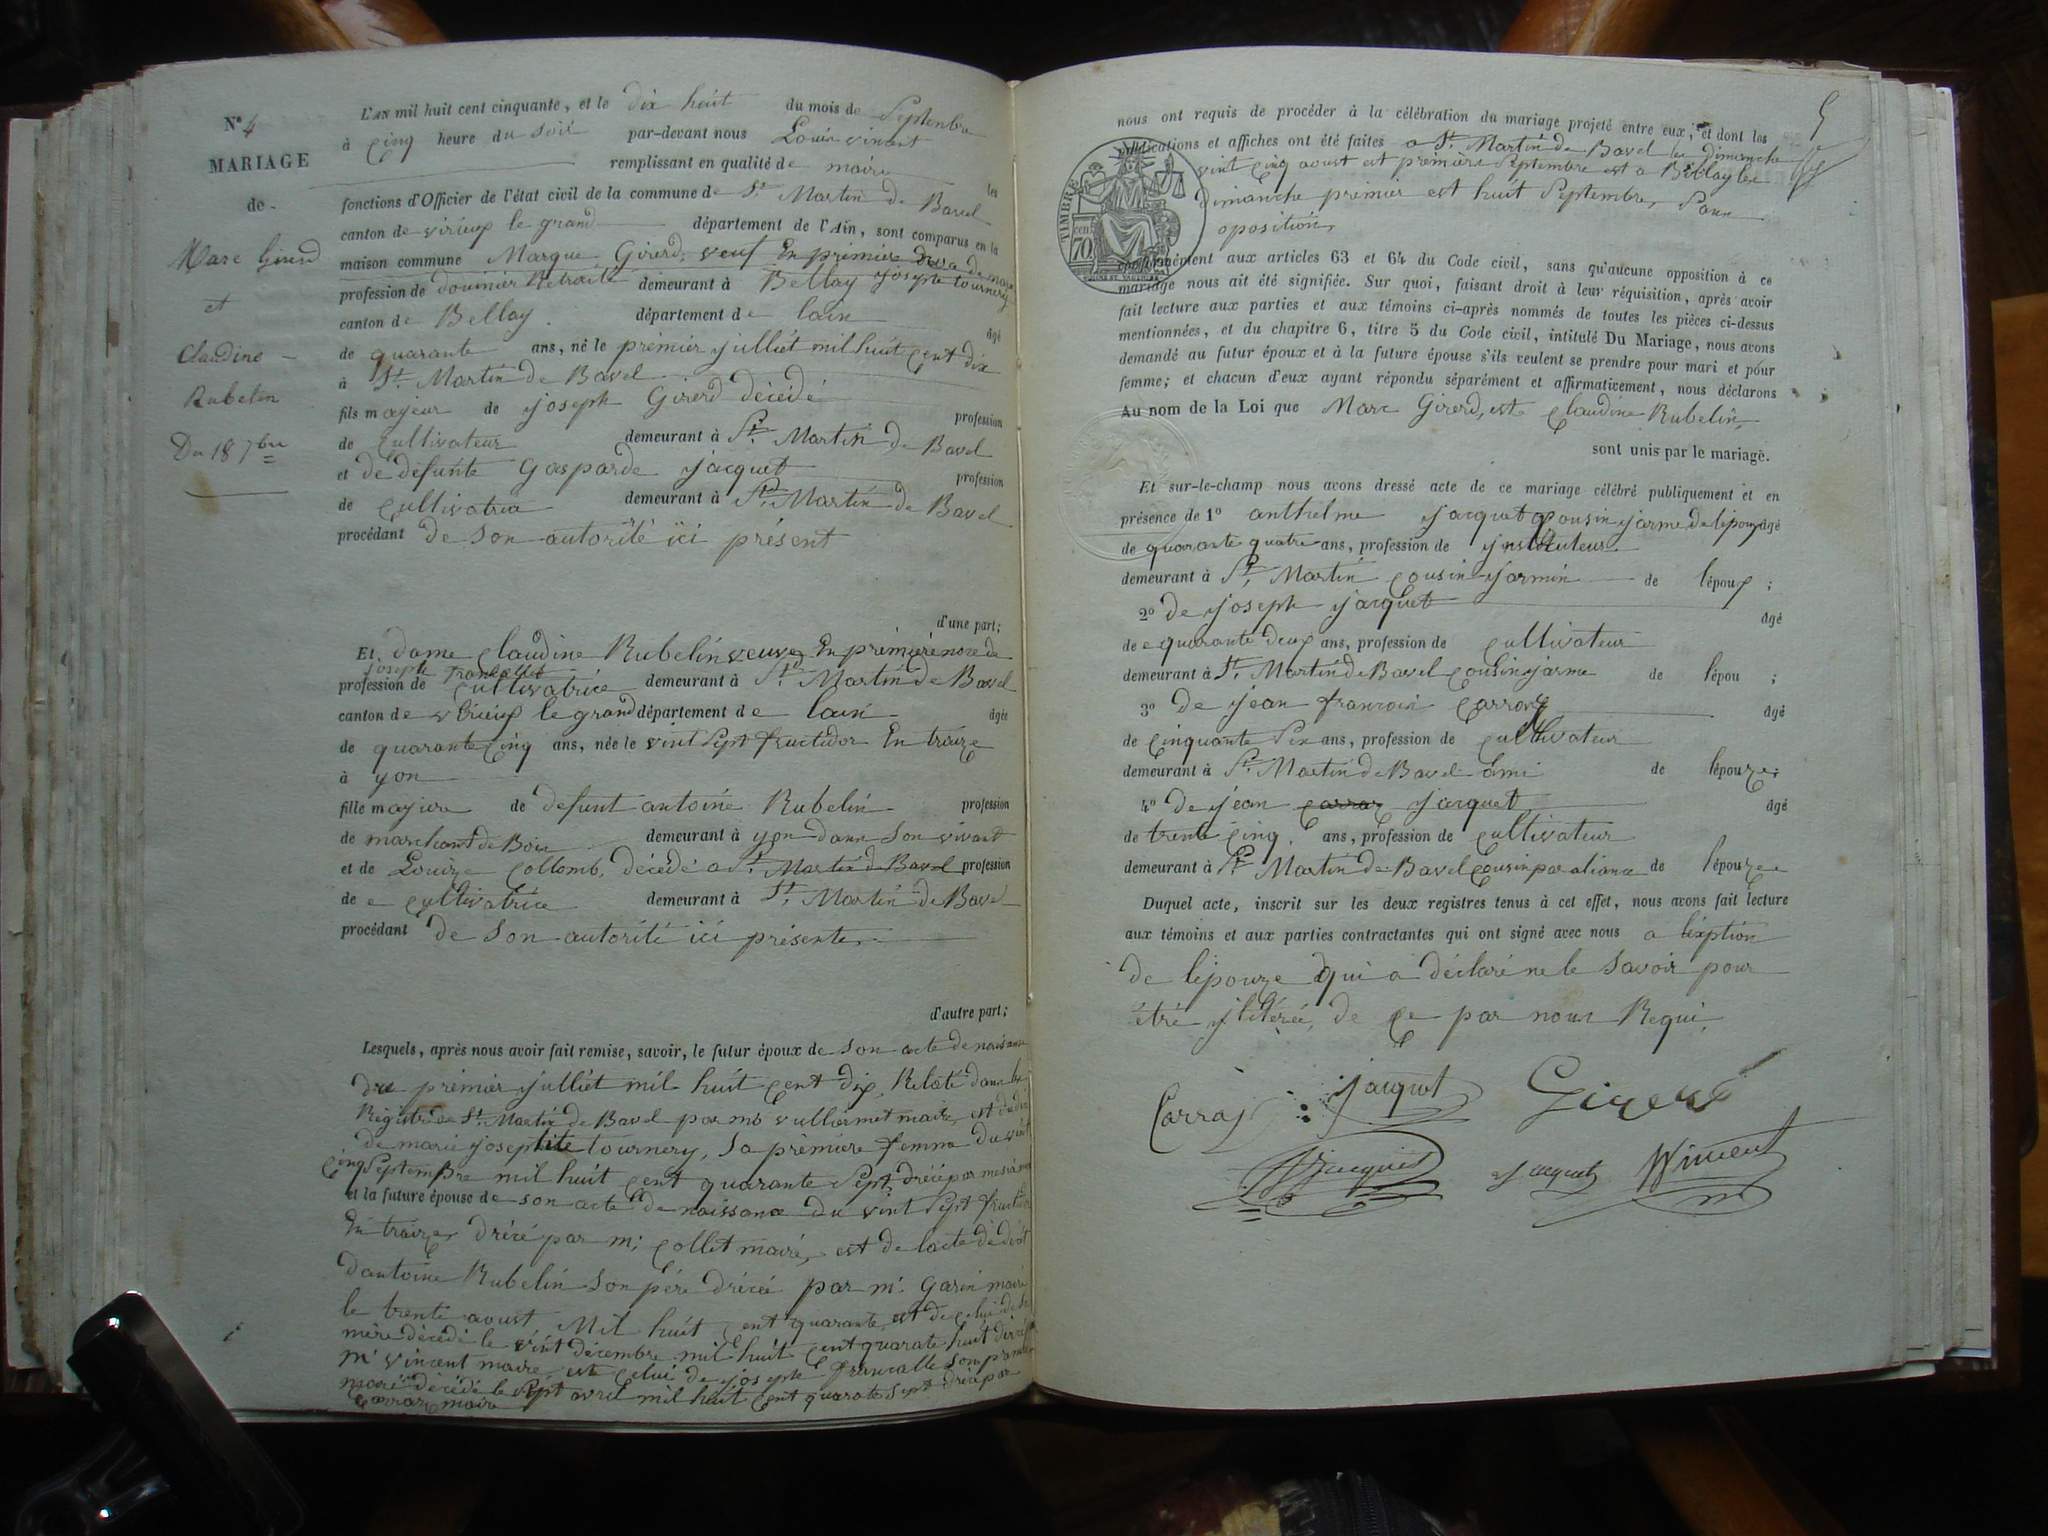 N° 4
MARIAGE
de
Marc Girerd
et
Claudine
Rubelin
Du 18 7bre
L'AN mil huit cent cinquante, et le dix huit du mois de Septembre
à cinq heure du soir par-devant nous Louis vincent
remplissant en qualité de maire les
fonctions d'Officier de l'état civil de la commune de St Martin de Bavel
canton de virieux le grand département de l'Ain, sont comparus en la
maison commune Marque Girerd, veuf En premier de marie
profession de douinier Retraité demeurant à Bellay josepte tournery
canton de Bellay département de lain âgé
de quarante ans, né le premier julliet mil huit cent dix
à St Martin de Bavel
fils majeur de joseph Girerd décédé profession
de cultivateur demeurant à St Martin de Bavel
et de defunte Gasparde jacquet profession
de cultivatrice demeurant à St Martin de Bavel
procédant de son autorité ici présent
d'une part;
Et dame Claudine Rubelin veuve En premiere noce de
joseph francallet
profession de cultivatrice demeurant à St Martin de Bavel
canton de virieux le grand département de lain âgée
de quarante cinq ans, née le vint sept fructidor En traize
à yon
fille majeure de defunt antoine Rubelin profession
de marchant de Bois demeurant à yon dans son vivant
et de Louize Collomb, décédé a St Martin de Bavel profession
de cultivatrice demeurant à St Martin de Bavel
procédant de son autorité ici présente
d'autre part;
Lesquels, après nous avoir fait remise, savoir, le futur époux de son acte de naissance
du premier julliet mil huit cent dix, Relaté dans les
Registre de St Martin de Bavel par mr vulliermet maire, est du
de marie josephte tournery, sa première femme du vint
cinq Septembre mil huit cent quarante sept, drécé par
et la future épouse de son acte de naissance du vint sept fructidor
En traize, drécé par m. Collet maire, est de lacte de décè
dantoine Rubelin son père drécé par mr Garin maire
le trente aoust Mil huit cent quarante, est de celui de sa
mère décédé le vint décembre mil huit cent quarante huit drécé
mr vincent maire, est celui de joseph francalle son premier
mari décédé le sept avril mil huit cent quarante sept drécé par
Carraz maire
5
nous ont requis de procéder à la célébration du mariage projeté entre eux, et dont les
publications et affiches ont été faites a St Martin de Bavel les dimanche
vint cinq aoust est premiere Septembre est a Bellay les
dimanche premier est huit Septembre, sans
oposition,
TIMBRE
cent
70
conformément aux articles 63 et 64 du Code civil, sans qu'aucune opposition à ce
mariage nous ait été signifiée. Sur quoi, faisant droit à leur réquisition, après avoir
fait lecture aux parties et aux témoins ci-après nommés de toutes les pièces ci-dessus
mentionnées, et du chapitre 6, titre 5 du Code civil, intitulé Du Mariage, nous avons
demandé au futur époux et à la future épouse s'ils veulent se prendre pour mari et pour
femme; et chacun d'eux ayant répondu séparément et affirmativement, nous déclarons
Au nom de la Loi que Marc Girerd, este Claudine Rubelin,
sont unis par le mariage.
Et sur-le-champ nous avons dressé acte de ce mariage célébré publiquement et en
présence de 1° anthelme jacquet cousin jarme de lépoux âgé
de quarante quatre ans, profession de jnstituteur
demeurant à St Martin cousin jarmin de l'époux;
2° de joseph jacquet âgé
de quarante deux ans, profession de cultivateur
demeurant à St Martin de Bavel cousin jarme de l'épou ;
3° de jean francois Carraz âgé
de cinquante six ans, profession de cultivateur
demeurant à St Martin de Bavel ami de l'épouze;
4° de jean carraz jacquet âgé
de trente cinq ans, profession de cultivateur
demeurant à St Martin de Bavel cousin par aliance de l'épouze
Duquel acte, inscrit sur les deux registres tenus à cet effet, nous avons fait lecture
aux témoins et aux parties contractantes qui ont signé avec nous a léxption
de lépouze qui a déclaré ne le savoir pour
être jlitérée, de ce par nous Requi.
Carraz jacquet Girerd
Jacquet jacquet Vincent